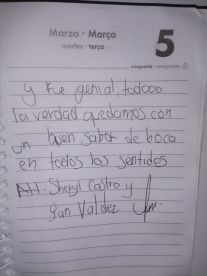 Marzo · Março
martes · terça
5
y Fue genial, todooo
la verdad quedamos con
un buen sabor de boca
en todos los sentidos
Att. Sheryl Castro y
Yan Valdez